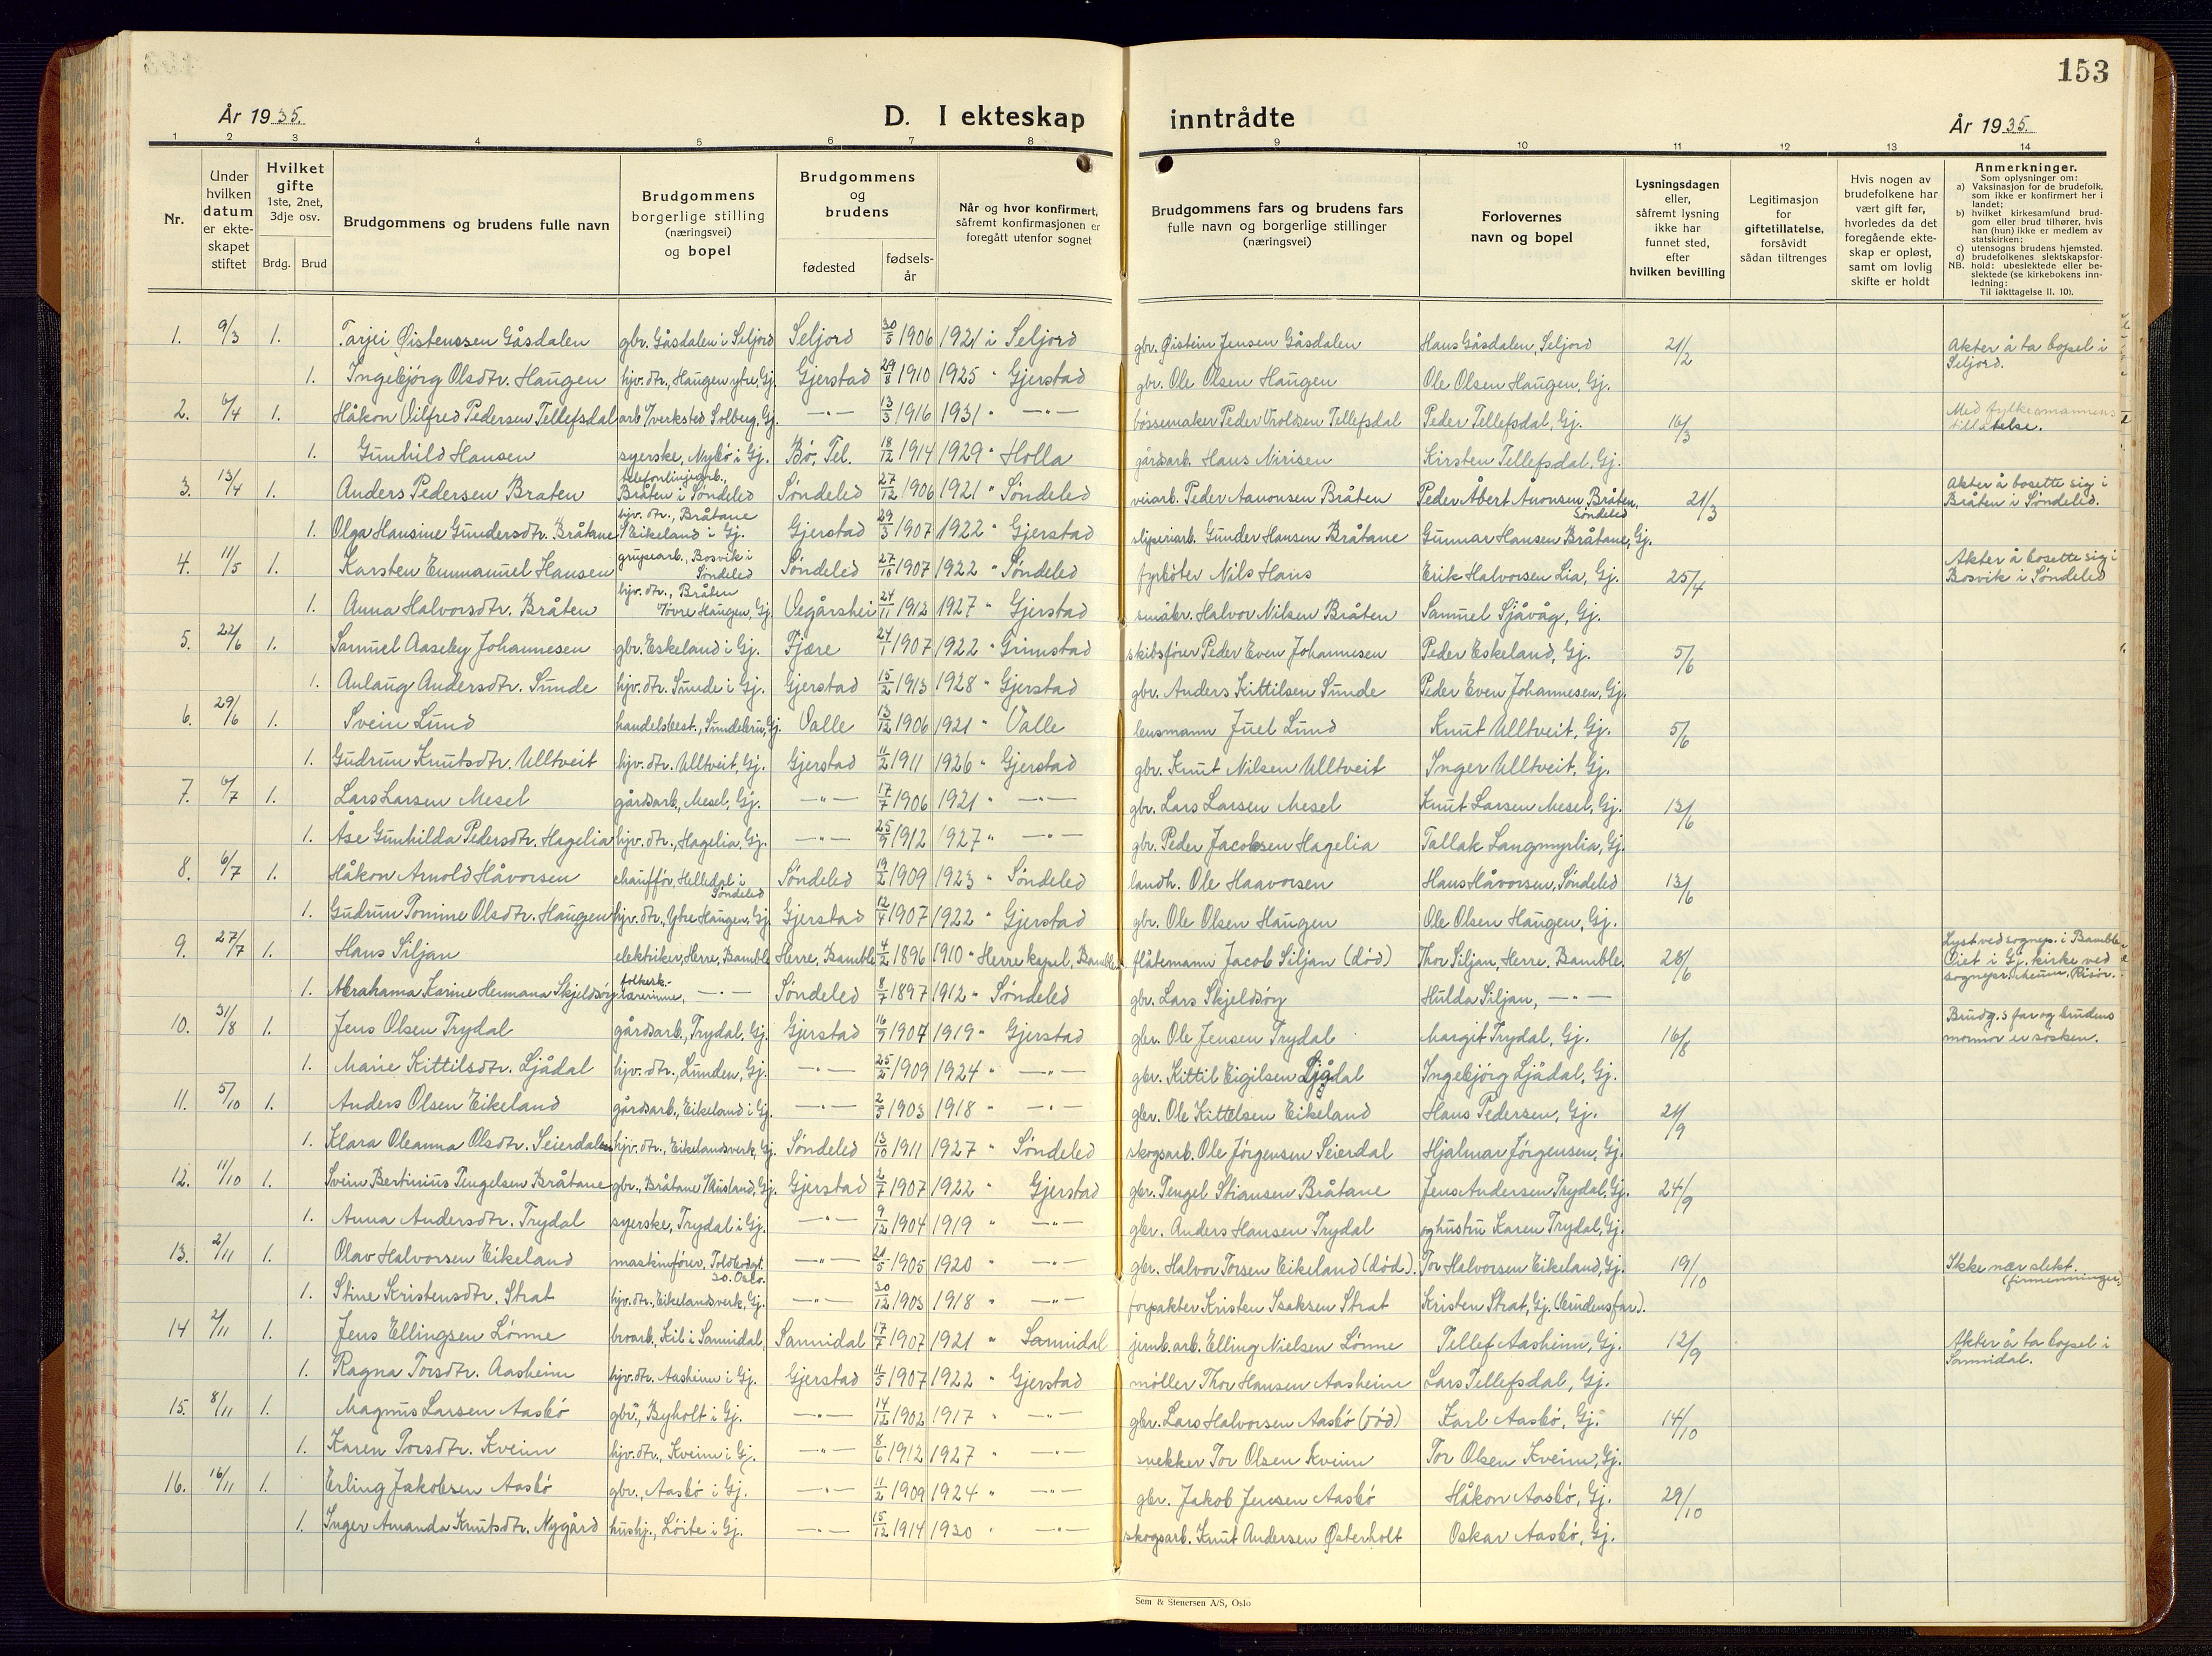 153
År 1935.
D. I ekteskap inntrådte
År 1935.
1 2 3 4 5 6 7 8 9 10 11 12 13 14
Nr.
Under hvilken datum er ekteskapet stiftet
Hvilket gifte 1ste, 2net, 3dje osv.
Brdg. Brud
Brudgommens og brudens fulle navn
Brudgommens borgerlige stilling (næringsvei) og bopel
Brudgommens og brudens
fødested
fødselsår
Når og hvor konfirmert, såfremt konfirmasjonen er foregått utenfor sognet
Brudgommens fars og brudens fars fulle navn og borgerlige stillinger (næringsvei)
Forlovernes navn og bopel
Lysningsdagen eller, såfremt lysning ikke har funnet sted, efter hvilken bevilling
Legitimasjon for giftetillatelse, forsåvidt sådan tiltrenges
Hvis nogen av brudefolkene har vært gift før, hvorledes da det foregående ekteskap er opløst, samt om lovlig skifte er holdt
Anmerkninger.
Som oplysninger om:
a) Vaksinasjon for de brudefolk, som ikke er konfirmert her i landet;
b) hvilket kirkesamfund brudgom eller brud tilhører, hvis han (hun) ikke er medlem av statskirken;
c) utensogns brudens hjemsted.
d) brudefolkenes slektskapsforhold: ubeslektede eller beslektede (se kirkebokens innledning:
NB.
Til iakttagelse II. 10).
1. 9/3 1. Tarjei Øistenssen Gåsdalen gbr. Gåsdalen i Seljord Seljord 30/5 1906 1921 i Seljord gbr. Øistein Jensen Gåsdalen Hans Gåsdalen, Seljord 21/2 Akter å ta bopel i Seljord.
1. Ingebjörg Olsdtr. Haugen hjv. dtr., Haugen ytre, Gj. Gjerstad 29/8 1910 1925 " Gjerstad gbr. Ole Olsen Haugen Ole Olsen Haugen, Gj.
2. 6/4 1. Håkon Vilfred Pedersen Tellefsdal arb v/verksted Solberg, Gj. —"— 13/3 1916 1931 " —"— bössemaker Peder Vroldsen Tellefsdal Peder Tellefsdal, Gj. 16/3 Med fylkesmannens tillatelse.
1. Gunhild Hansen syerske, Nybö i Gj. Bö, Tel. 18/12 1914 1929 " Holla gårdsarb. Hans Nirisen Kirsten Tellefsdal, Gj.
3. 13/4 1. Anders Pedersen Braten telefonlinjearb., Bråten i Söndeled Söndeled 27/12 1906 1921 " Söndeled veiarb. Peder Aanonsen Bråten Peder Åbert Ånonsen, Bråten, Söndeled 21/3 Akter å bosette sig i Bråten i Söndeled.
1. Olga Hansine Gundersdtr. Bråtane hjv. dtr., Bråtane /Eikeland i Gj. Gjerstad 29/3 1907 1922 " Gjerstad sliperiarb. Gunder Hansen Bråtane Gunnar Hansen Bråtane, Gj.
4. 11/5 1. Karsten Emmanuel Hansen grupearb., Bosvik i Söndeled Söndeled 27/10 1907 1922 " Söndeled fyrböter Nils Hans Erik Halvorsen Lia, Gj. 25/4 Akter å bosette sig i Bosvik i Söndeled
1. Anna Halvorsdtr. Bråten hjv. dtr., Bråten /Övre Haugen, Gj. Vegårshei 24/11 1912 1927 " Gjerstad småbr. Halvor Nilsen Bråten Samuel Sjåvåg, Gj.
5. 22/6 1. Samuel Aaseby Johannesen gbr. Eskeland i Gj. Fjære 24/1 1907 1922 " Grimstad skibsförer Peder Even Johannesen Peder Eskeland, Gj. 5/6
1. Aulaug Andersdtr. Sunde hjv. dtr. Sunde i Gj. Gjerstad 15/2 1913 1928 " Gjerstad gbr. Anders Kittilsen Sunde Peder Even Johannesen, Gj.
6. 29/6 1. Svein Lund handelsbest., Sundebru, Gj. Valle 13/12 1906 1921 " Valle lensmann Juel Lund Knut Ulltveit, Gj. 5/6
1. Gudrun Knutsdtr. Ulltveit hjv. dtr. Ulltveit, Gj. Gjerstad 11/2 1911 1926 " Gjerstad gbr. Knut Nilsen Ulltveit Inger Ulltveit, Gj.
7. 6/7 1. Lars Larsen Mesel gårdsarb., Mesel, Gj. —"— 17/7 1906 1921 " —"— gbr. Lars Larsen Mesel Knut Larsen Mesel, Gj. 13/6
1. Åse Gunhilda Pedersdtr. Hagelia hjv. dtr., Hagelia, Gj. —"— 25/9 1912 1927 " —"— gbr. Peder Jacobsen Hagelia Tallak Langmyrlia, Gj.
8. 6/7 1. Håkon Arnold Håvorsen chaufför, Helledal i Söndeled Söndeled 19/2 1909 1923 " Söndeled landh. Ole Haavorsen Hans Håvorsen, Söndeled 13/6
1. Gudrun Tomine Olsdtr. Haugen hjv. dtr., Ytre Haugen, Gj. Gjerstad 12/4 1907 1922 " Gjerstad gbr. Ole Olsen Haugen Ole Olsen Haugen, Gj.
9. 27/7 1. Hans Siljan elektriker, Herre, Bamble Herre, Bamble 4/2 1896 1910 " Herre kapel, Bamble flåtemann Jacob Siljan (död) Thor Siljan, Herre. Bamble. 28/6 Lyst ved sognepr. i Bamble. Viet i Gj. kirke ved sognepr. Risör.
1. Abrahama Karine Hermana Skjeldsöy folkesk.-lærerinne, —"— Söndeled 8/7 1897 1912 " Söndeled gbr. Lars Skjeldsöy Hulda Siljan, —"—
10. 31/8 1. Jens Olsen Trydal gårdsarb., Trydal, Gj. Gjerstad 16/9 1904 1919 " Gjerstad gbr. Ole Jensen Trydal Margit Trydal, Gj. 16/8 Brudg.s far og brudens mormor er sösken.
1. Marie Kittilsdtr. Ljådal hjv. dtr., Lunden, Gj. —"— 25/2 1909 1924 " —"— gbr. Kittil Eigilsen Ljådal Ingebjörg Ljådal, Gj.
11. 5/10 1. Anders Olsen Eikeland gårdsarb., Eikeland i Gj. —"— 2/5 1903 1918 " —"— gbr. Ole Kittelsen Eikeland Hans Pedersen, Gj. 21/9
1. Klara Oleanna Olsdtr. Seierdalen hjv. dtr., Eikelandsverk, Gj. Söndeled 13/10 1911 1927 " Söndeled skogsarb. Ole Jörgensen Seierdal Hjalmar Jörgensen, Gj.
12. 11/10 1. Svein Bertinius Tengelsen Bråtane gbr., Bråtane /Ausland, Gj. Gjerstad 2/7 1907 1922 " Gjerstad gbr. Tengel Stiansen Bråtane Jens Andersen Trydal, Gj. 24/9
1. Anna Andersdtr. Trydal syerske, Trydal i Gj. —"— 9/12 1904 1919 " —"— gbr. Anders Hansen Trydal og hustru Karen Trydal, Gj.
13. 2/11 1. Olav Halvorsen Eikeland maskinförer, Toldbodgt. 30. Oslo. —"— 21/5 1905 1920 " —"— gbr. Halvor Torsen Eikeland (död). Tor Halvorsen Eikeland, Gj. 19/10 Ikke nær slekt. (firmenninger)
1. Stine Kristensdtr. Strat hjv. dtr., Eikelandsverk, Gj. —"— 30/12 1903 1918 " —"— forpakter Kristen Isaksen Strat Kristen Strat, Gj. (brudens far).
14 2/11 1. Jens Ellingsen Lönne broarb. Kil i Sannidal, Sannidal 17/7 1907 1921 " Sannidal jernb. arb. Elling Nielsen Lönne Tellef Aasheim, Gj. 12/9 Akter å ta bopel i Sannidal.
1. Ragna Torsdtr. Aasheim hjv. dtr. Aasheim i Gj. Gjerstad 11/5 1907 1922 " Gjerstad möller Thor Hansen Aasheim Lars Tellefsdal, Gj.
15. 8/11 1. Magnus Larsen Aasbö gbr., Byholt i Gj. —"— 14/12 1902 1917 " —"— gbr. Lars Halvorsen Aasbö (död) Karl Aasbö, Gj. 14/10
1. Karen Torsdtr. Kveim hjv. dtr., Kveim i Gj. —"— 8/6 1912 1927 " —"— snekker Tor Olsen Kveim Tor Olsen Kveim, Gj.
16. 16/11 1. Erling Jakobsen Aasbö gbr., Aasbö i Gj. —"— 11/2 1909 1924 " —"— gbr. Jakob Jensen Aasbö Håkon Aasbö, Gj. 29/10
1. Inger Amanda Knutsdtr. Nygård hushj., Löite i Gj. —"— 15/12 1914 1930 " —"— skogsarb. Knut Andersen Østerholt Oskar Aasbö, Gj.
Sem & Stenersen A/S, Oslo